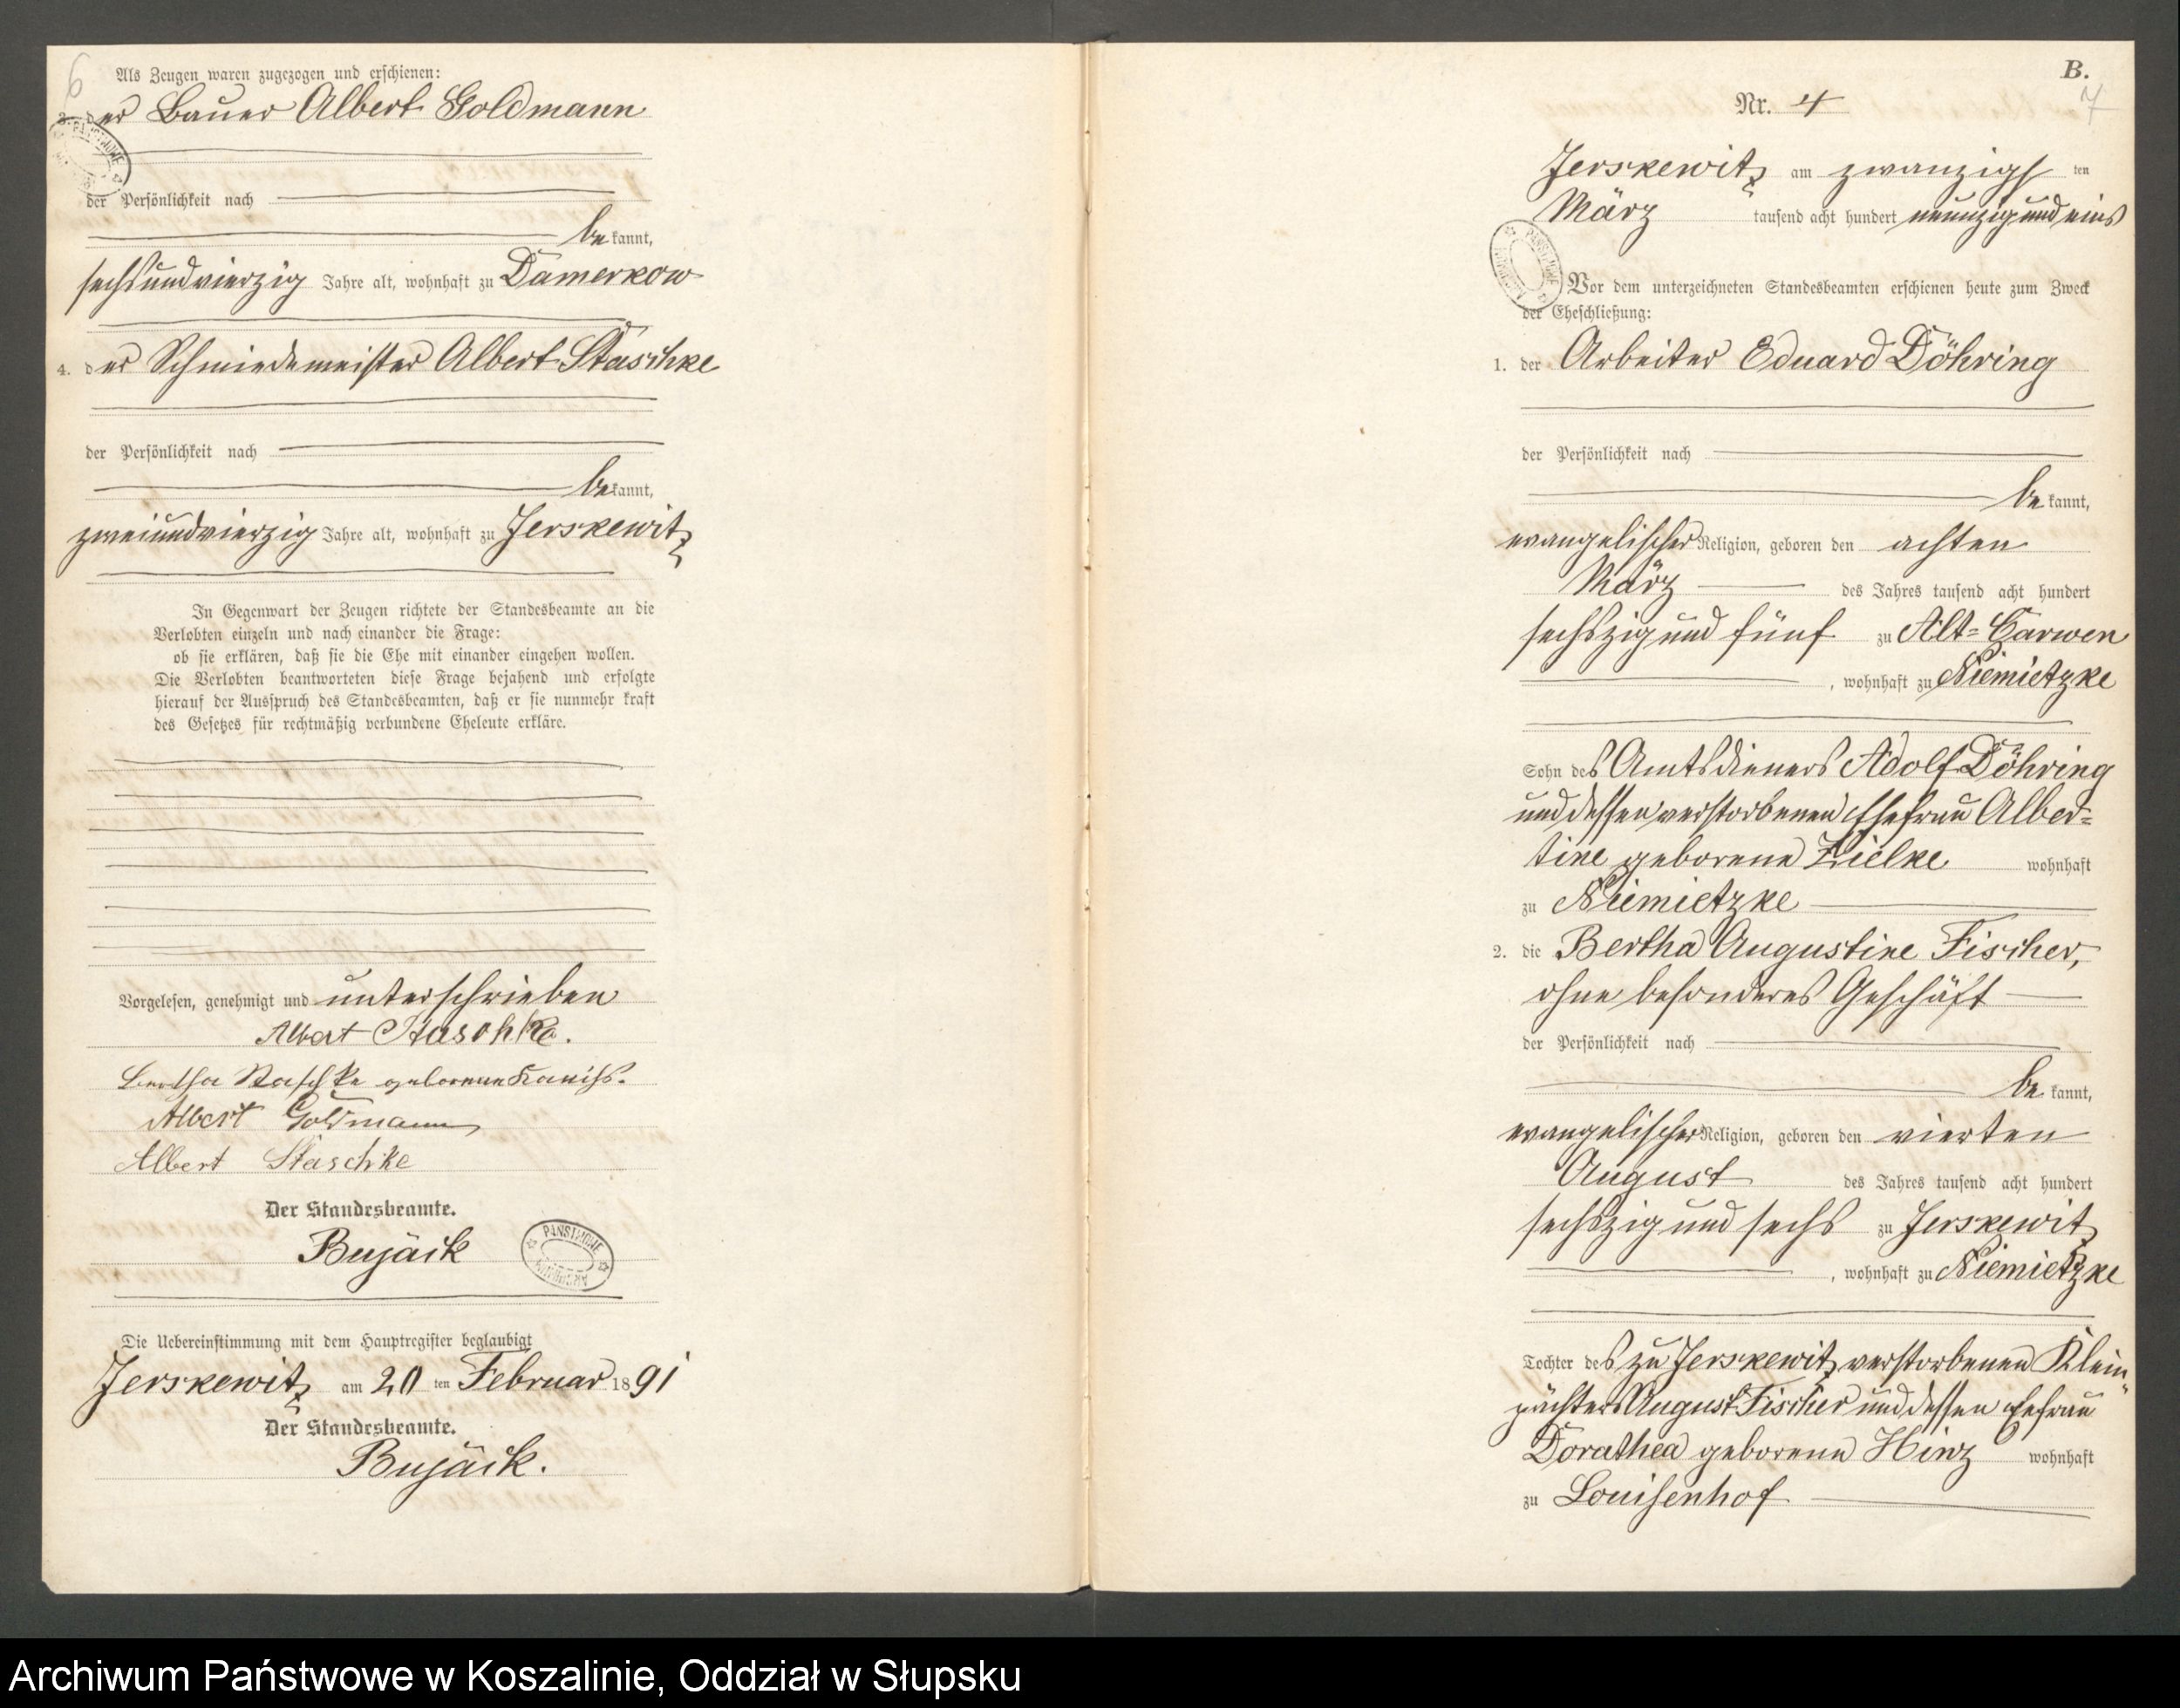 6
Als Zeugen waren zugezogen und erschienen:
3. der Bauer Albert Goldmann
der Persönlichkeit nach
bekannt,
sechsundvierzig Jahre alt, wohnhaft zu Damerkow
4. der Schmiedemeister Albert Staschke
der Persönlichkeit nach
bekannt,
zweiundvierzig Jahre alt, wohnhaft zu Jerskewitz
In Gegenwart der Zeugen richtete der Standesbeamte an die
Verlobten einzeln und nach einander die Frage:
ob sie erklären, daß sie die Ehe mit einander eingehen wollen.
Die Verlobten beantworteten diese Frage bejahend und erfolgte
hierauf der Ausspruch des Standesbeamten, daß er sie nunmehr kraft
des Gesetzes für rechtmäßig verbundene Eheleute erkläre.
Vorgelesen, genehmigt und unterschrieben
Albert Staschke.
Bertha Staschke geborene
Albert Goldmann
Albert Staschke
Der Standesbeamte.
Bujäck
PAŃSTWOWE ARCHIWUM
Die Uebereinstimmung mit dem Hauptregister beglaubigt
Jerskewitz am 20 ten Februar 1891
Der Standesbeamte.
Bujäck.
B.
7
Nr. 4
Jerskewitz am zwanzigsten
März tausend acht hundert neunzig und eins
Vor dem unterzeichneten Standesbeamten erschienen heute zum Zweck
der Eheschließung:
1. der Arbeiter Eduard Döhring
der Persönlichkeit nach
bekannt,
evangelischer Religion, geboren den achten
März des Jahres tausend acht hundert
sechszig und fünf zu Alt-Carwen
, wohnhaft zu Niemietzke
Sohn des Amtsdieners Adolf Döhring
und dessen verstorbenen Ehefrau Alber-
tine geborene Zielke wohnhaft
zu Niemietzke
2. die Bertha Augustine Fischer,
ohne besonderes Geschäft
der Persönlichkeit nach
bekannt,
evangelischer Religion, geboren den vierten
August des Jahres tausend acht hundert
sechszig und sechs zu Jerskewitz
, wohnhaft zu Niemietzke
Tochter des zu Jerskewitz verstorbenen Klein-
pächters August Fischer und dessen Ehefrau
Dorathea geborene Hinz wohnhaft
zu Louisenhof
Archiwum Państwowe w Koszalinie, Oddział w Słupsku